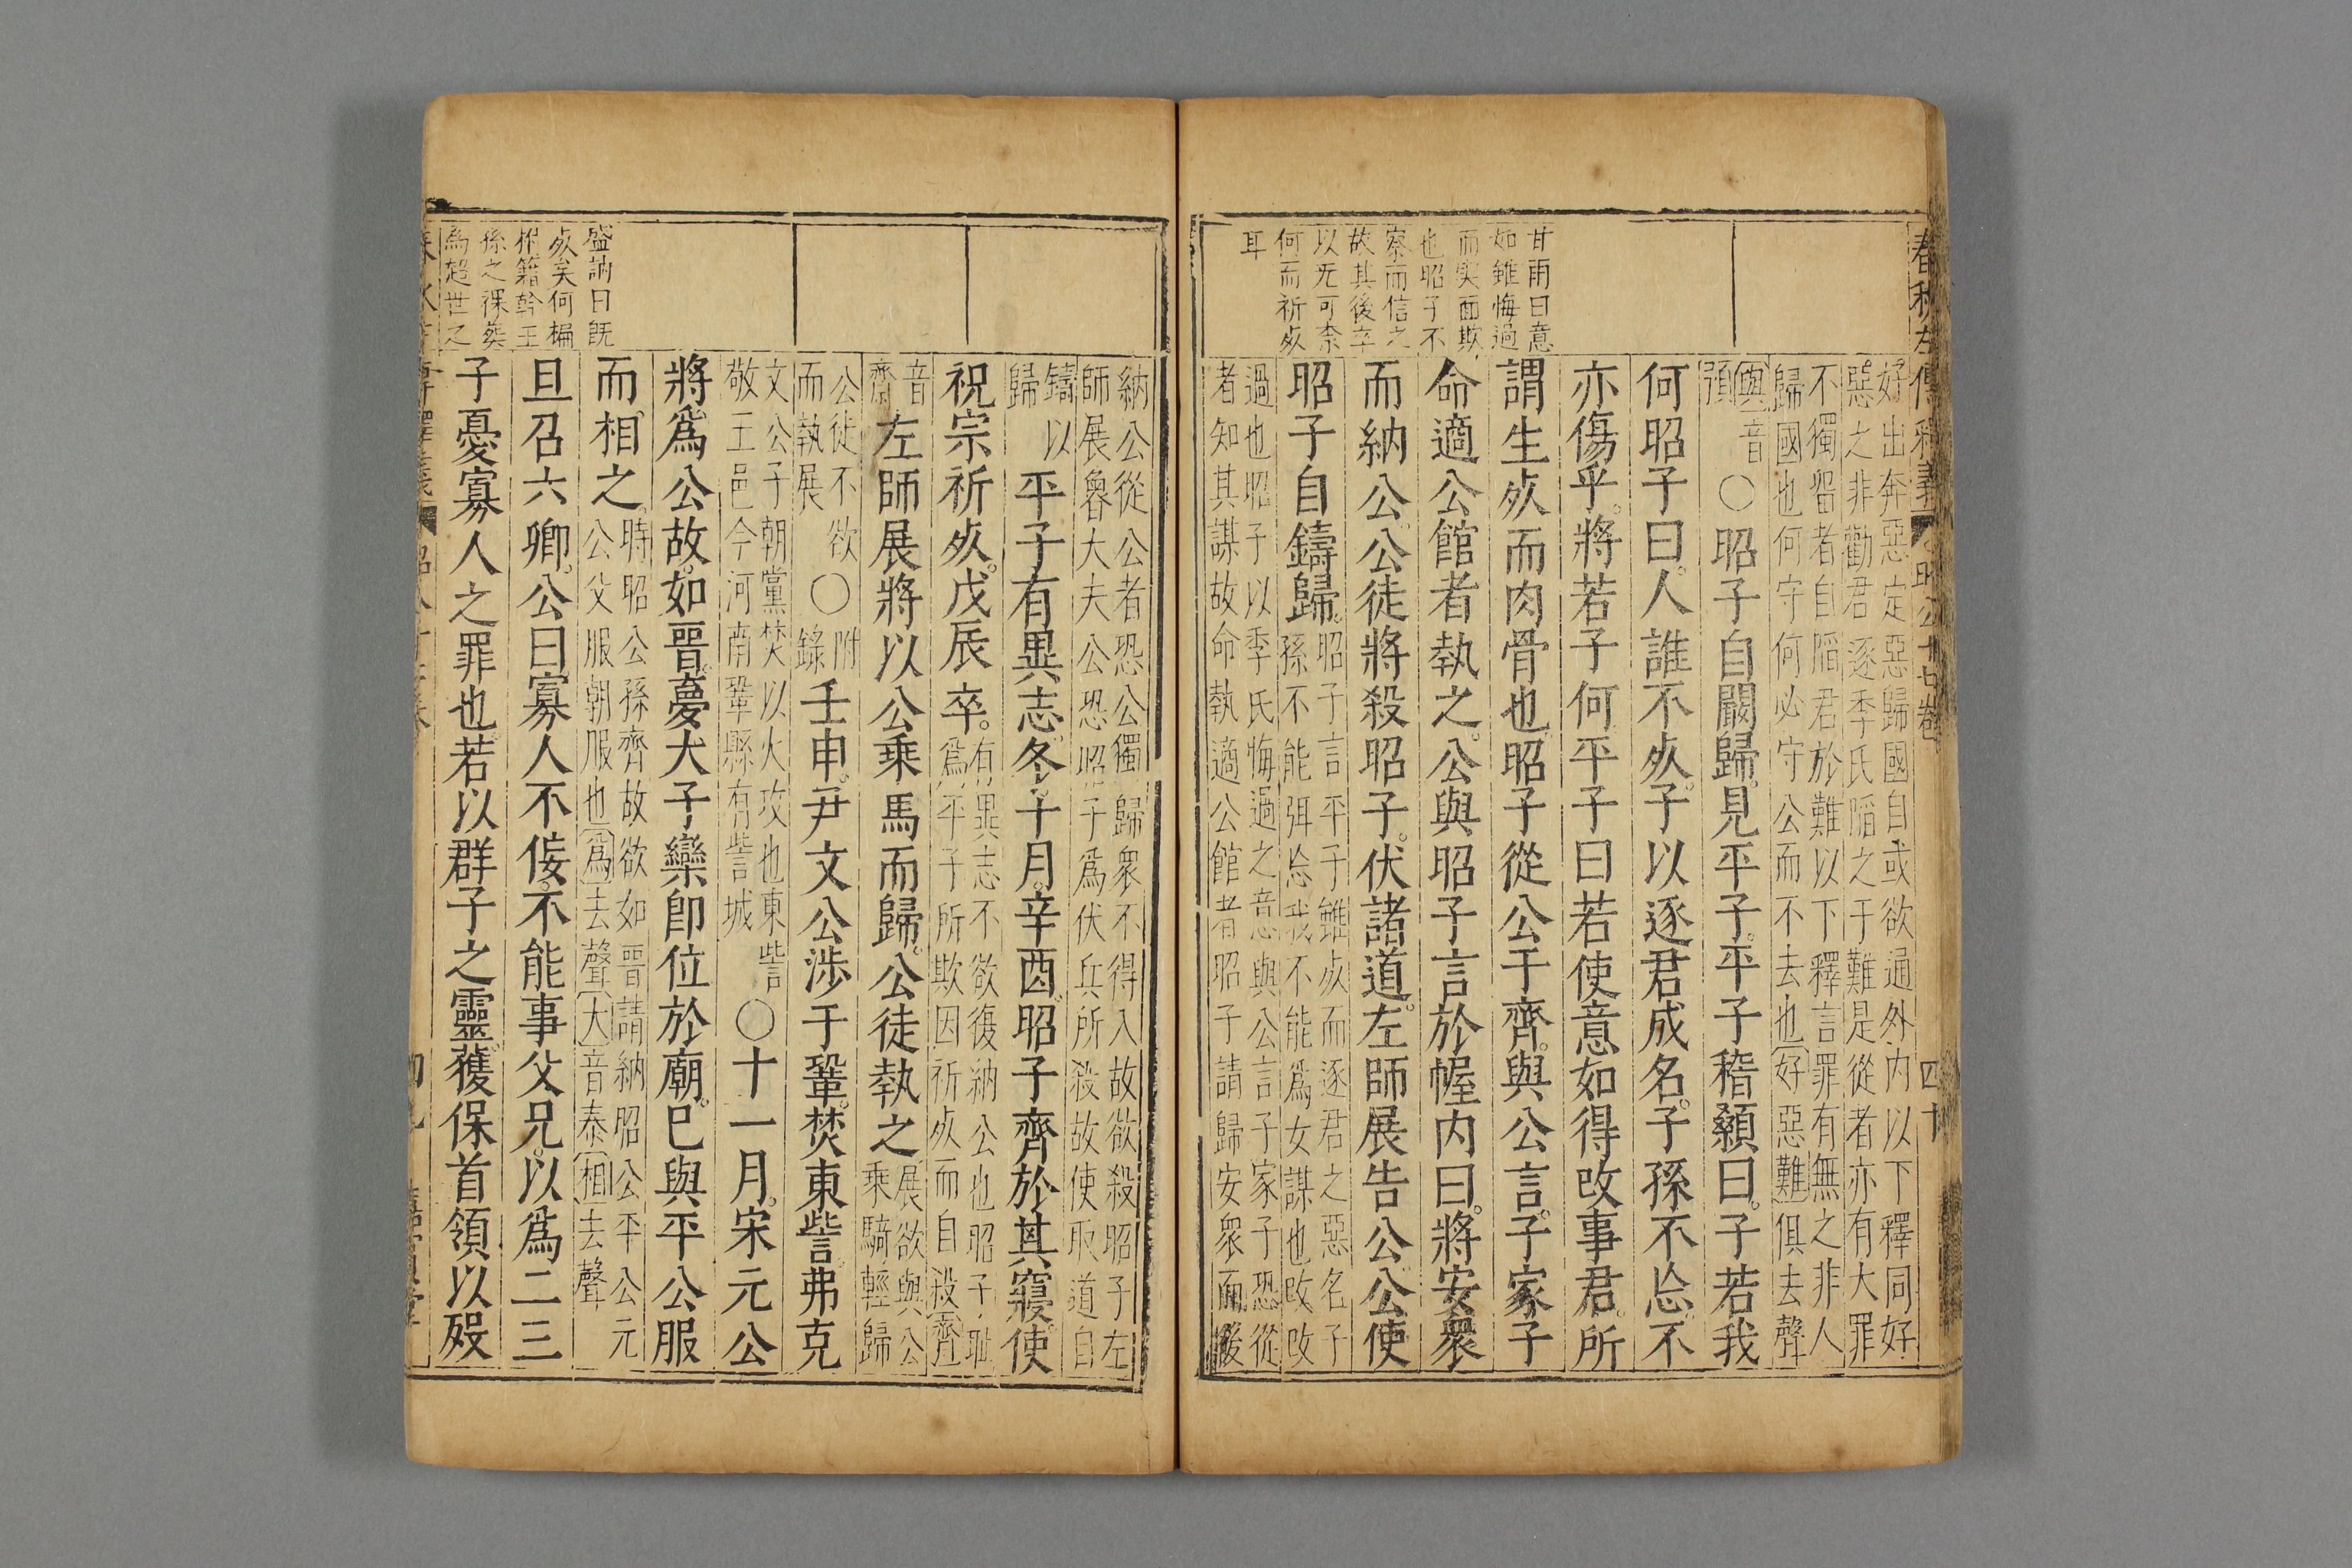 春秋左傳釋義
昭公十七卷
四十
甘雨曰意
如雖悔過
而実面欺
也昭子不
察而信之
故其後卒
以无可柰
何而祈㱙
耳
好出奔惡定惡歸國自或欲通外内以下釋同好
惡之非勸君逐季氏陷之于難是從者亦有大罪
不獨留者自陷君於難以下釋言罪有無之非人
歸國也何守何必守公而不去也好惡難俱去聲
與音
預
○昭子自闞歸見平子。平子稽顙曰。子若我
何昭子曰。人誰不㱙。子以逐君成名。子孫不忘。不
亦傷乎。將若子何平子曰若使意如得改事君。所
謂生㱙而肉骨也昭子從公于齊。與公言。子家子
命適公館者執之。公與昭子言於幄内曰。將安衆
而納公。公徒將殺昭子。伏諸道。左師展告公公使
昭子自鑄歸。
昭子言平子雖㱙而逐君之惡名子
孫不能弭忘我不能爲女謀也改改
過也昭子以季氏悔過之意與公言子家子恐從
者知其謀故命執適公館者昭子請歸安衆而後
納公從公者恐公獨歸衆不得入故欲殺昭子左
師展魯大夫公恐昭子爲伏兵所殺故使取道自
鑄以
歸
平子有異志。冬。十月。辛酉。昭子齊於其寢。使
祝宗祈㱙。戊辰卒。
有異志不欲復納公也昭子耻
爲平子所欺因祈㱙而自殺齊
音
齋
左師展將以公乘馬而歸。公徒執之
展欲與公
乘騎輕歸
公徒不欲
而執展
○
附
錄
壬申。尹文公涉于鞏。焚東訾弗克
文公子朝黨焚以火攻也東訾
敬王邑今河南鞏縣有訾城
○十一月。宋元公
將爲公故。如晋。夢大子欒卽位於廟。巳與平公服
而相之。
時昭公孫齊故欲如晋請納昭公平公元
公父服朝服也爲去聲大音泰相去聲
旦召六卿。公曰寡人不佞。不能事父兄。以爲二三
子憂寡人之罪也。若以群子之靈。獲保首領以歿
盛訥曰旣
㱙矣何楄
柎籍幹王
孫之祼葬
爲超世之